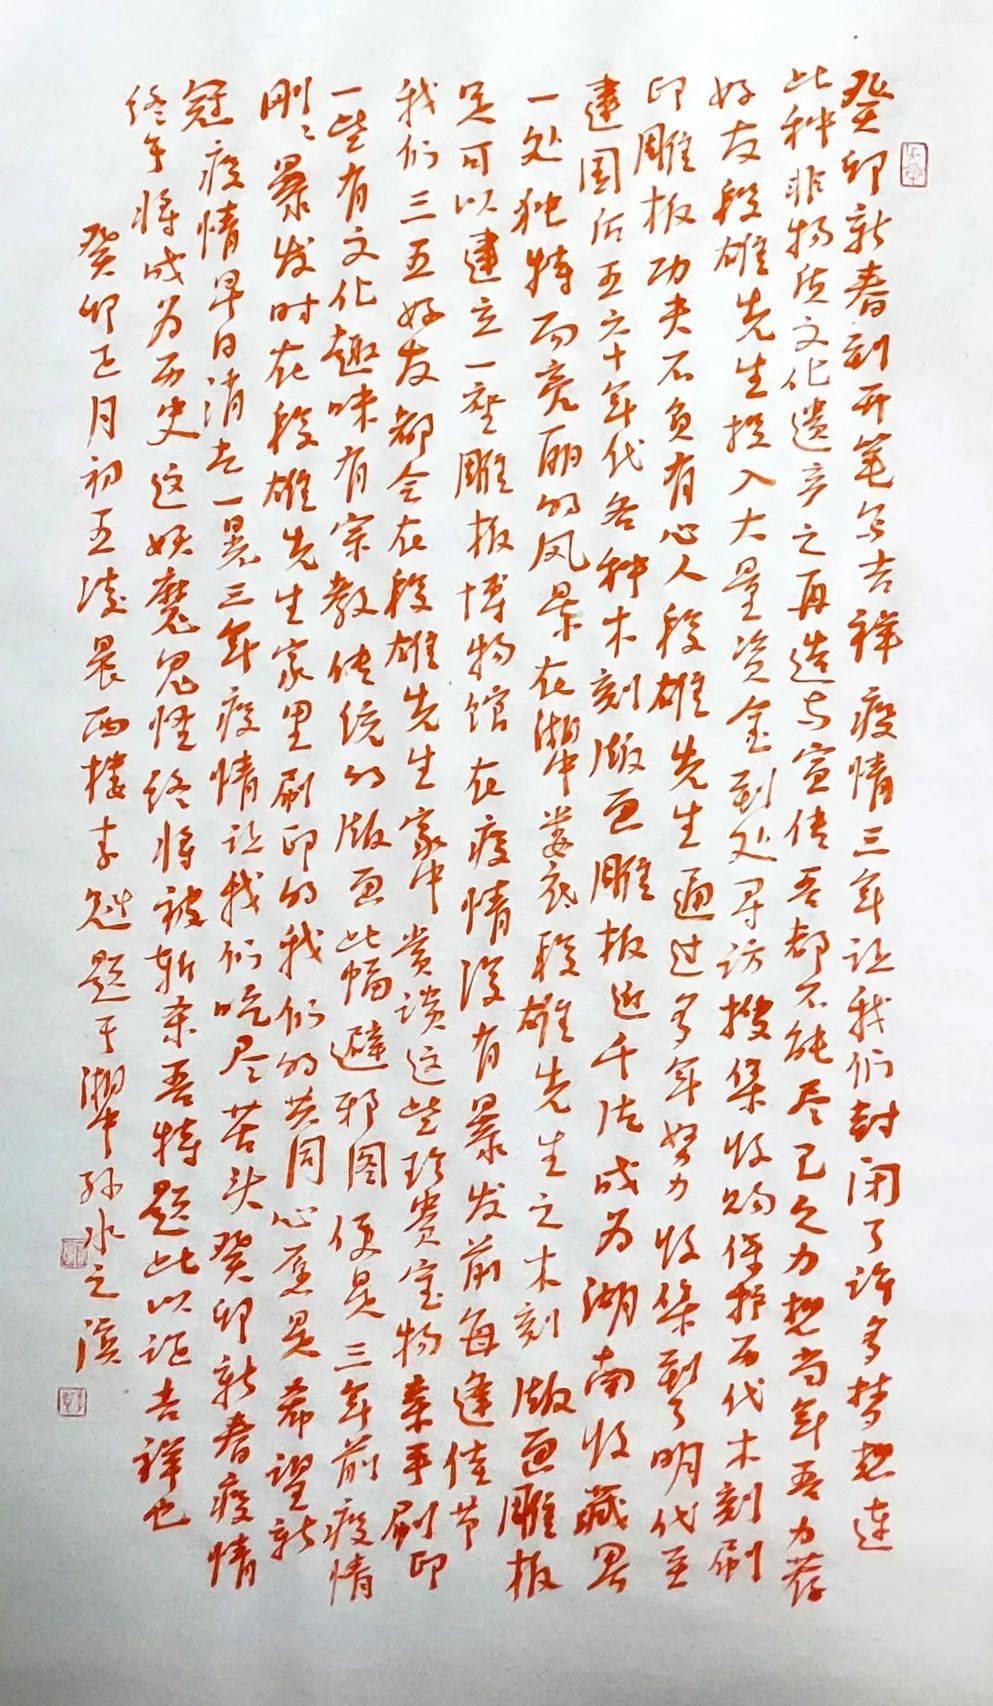 癸卯新春刻开笔写吉祥疫情三年让我们封闭了许多梦想连
此种非物质文化遗产之再造与宣传吾都不能尽己之力想当年吾力荐
好友段雄先生投入大量资金到处寻访搜集收购保护历代木刻刷
印雕板功夫不负有心人段雄先生通过多年努力收集到了明代至
建国后五六十年代各种木刻版画雕板近千片成为湖南收藏界
一处独特而亮丽的风景在湖中娄底段雄先生之木刻版画雕板
足可以建立一座雕板博物馆在疫情没有暴发前每逢佳节
我们三五好友都会在段雄先生家中赏读这些珍贵宝物亲手刷印
一些有文化趣味有宗教传统的版画此幅避邪图便是三年前疫情
刚刚暴发时在段雄先生家里刷印的我们的共同心愿是希望新
冠疫情早日消去一晃三年疫情让我们吃尽苦头癸卯新春疫情
终于将成为历史这妖魔鬼怪终将被斩杀吾特题此以证吉祥也
癸卯正月初五凌晨西楼李 题于湘中孙水之滨